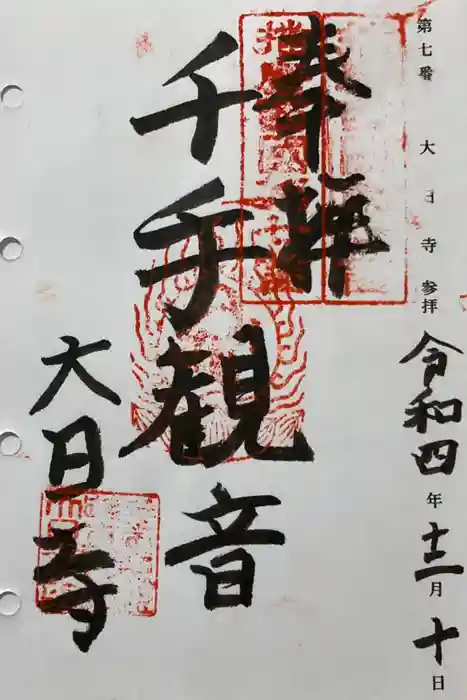 第七番 大日寺 参拝
令和四年十二月十日
奉拝
千手観音
大日寺